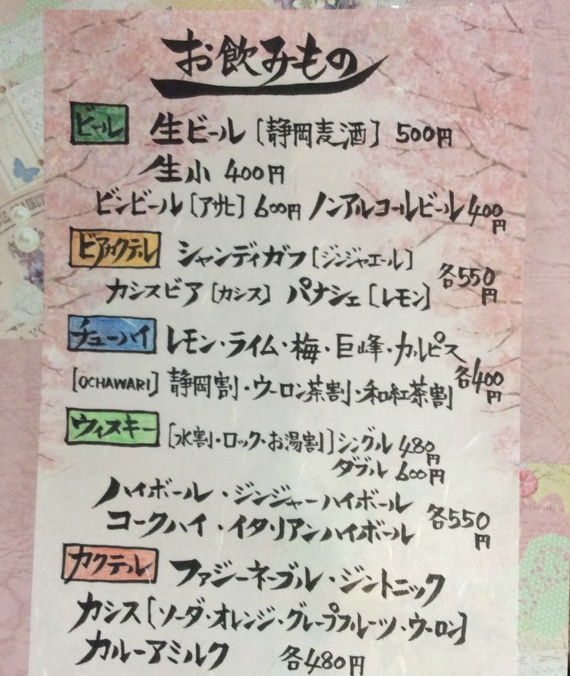 お飲みもの
ビール 生ビール [静岡麦酒] 500円
生小 400円
ビンビール [アサヒ] 600円 ノンアルコールビール 400円
ビアカクテル シャンディガフ [ジンジャエール]
カシスビア [カシス] パナシェ [レモン] 各550円
チューハイ レモン・ライム・梅・巨峰・カルピス
[OCHAWARI] 静岡割・ウーロン茶割・和紅茶割 各400円
ウィスキー [水割・ロック・お湯割] シングル 480円
ダブル 600円
ハイボール・ジンジャーハイボール
コークハイ・イタリアンハイボール 各550円
カクテル ファジーネーブル・ジントニック
カシス [ソーダ・オレンジ・グレープフルーツ・ウーロン]
カルーアミルク 各480円